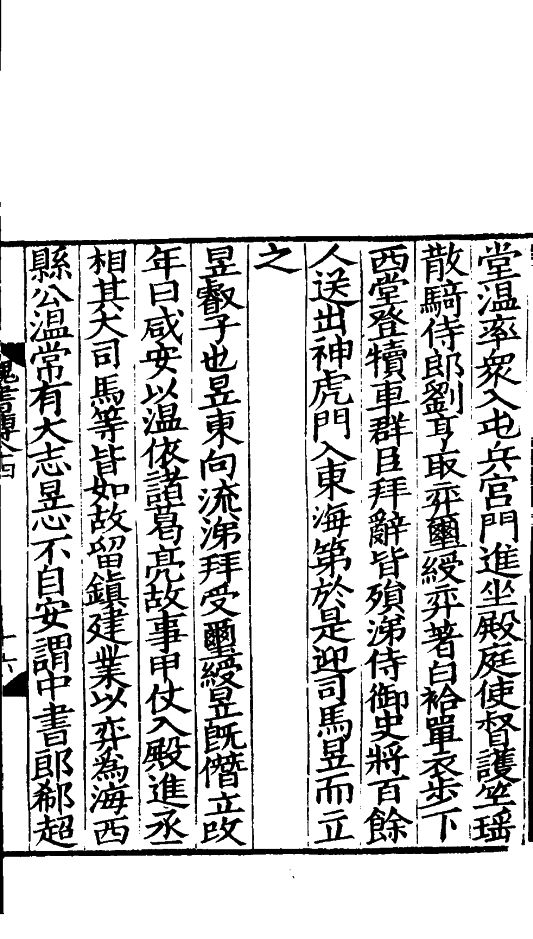 堂温率衆入屯兵宮門進坐殿庭使督護竺瑶
散騎侍郎劉享取弈璽綬弈著白袷單衣步下
西堂登犢車群臣拜辭皆殞涕侍御史將百餘
人送出神虎門入東海第於是迎司馬昱而立
之
昱叡子也昱東向流涕拜受璽綬昱旣僭立改
年曰咸安以温依諸葛亮故事甲仗入殿進丞
相其大司馬等皆如故留鎮建業以弈爲海西
縣公温常有大志昱心不自安謂中書郎郗超
魏書傳八十四
十六